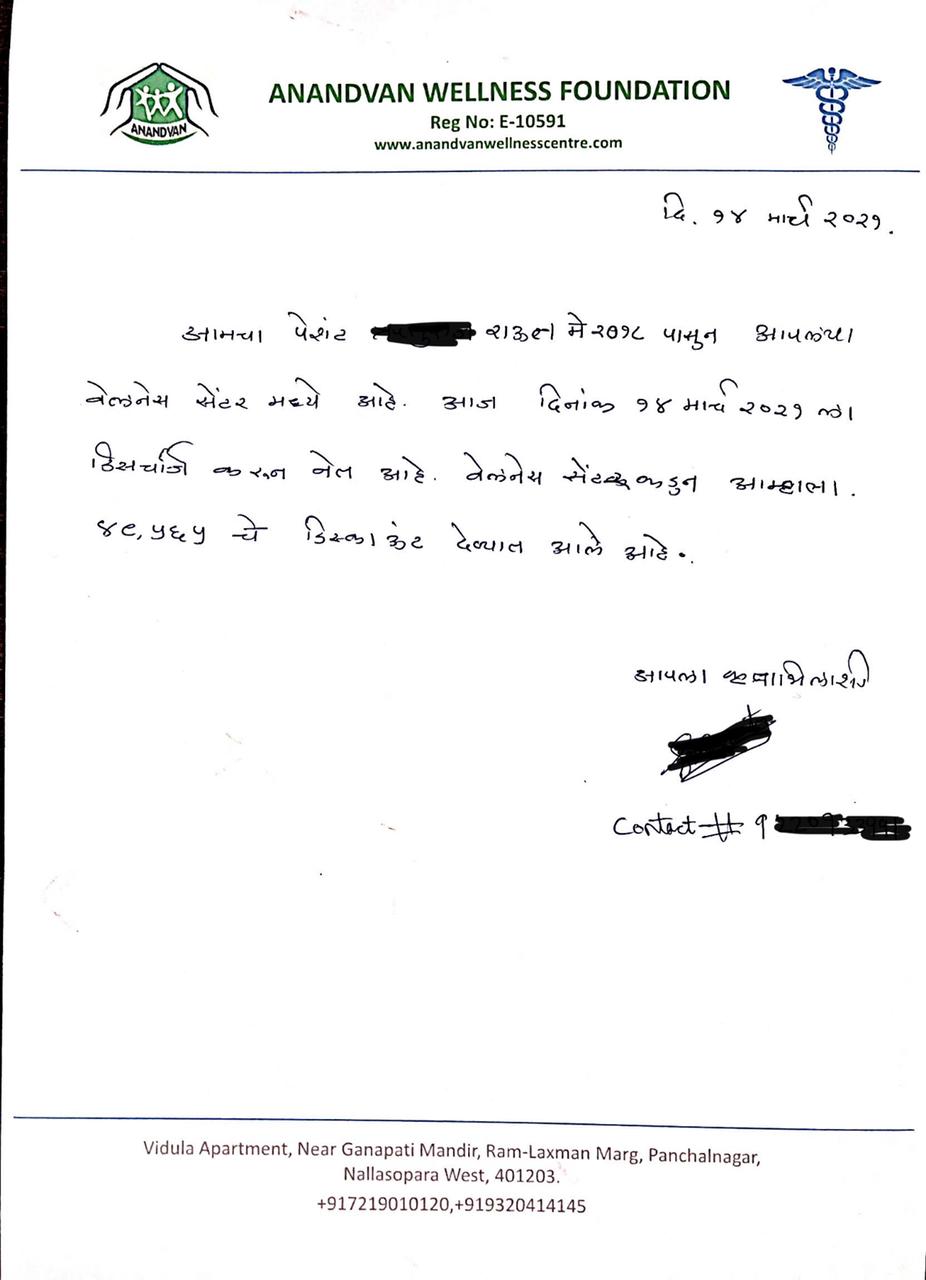 ANANDVAN
ANANDVAN WELLNESS FOUNDATION
Reg No: E-10591
www.anandvanwellnesscentre.com
दि. १४ मार्च २०२१.
आमचा पेशंट राऊत मे २०१८ पासुन आपल्या
वेलनेस सेंटर मध्ये आहे. आज दिनांक १४ मार्च २०२१ ला
डिसचार्ज करुन नेत आहे. वेलनेस सेंटर कडुन आम्हाला.
४९,५६५ चे डिस्काऊंट देण्यात आले आहे.
आपला
Contact # 9
Vidula Apartment, Near Ganapati Mandir, Ram-Laxman Marg, Panchalnagar,
Nallasopara West, 401203.
+917219010120,+919320414145